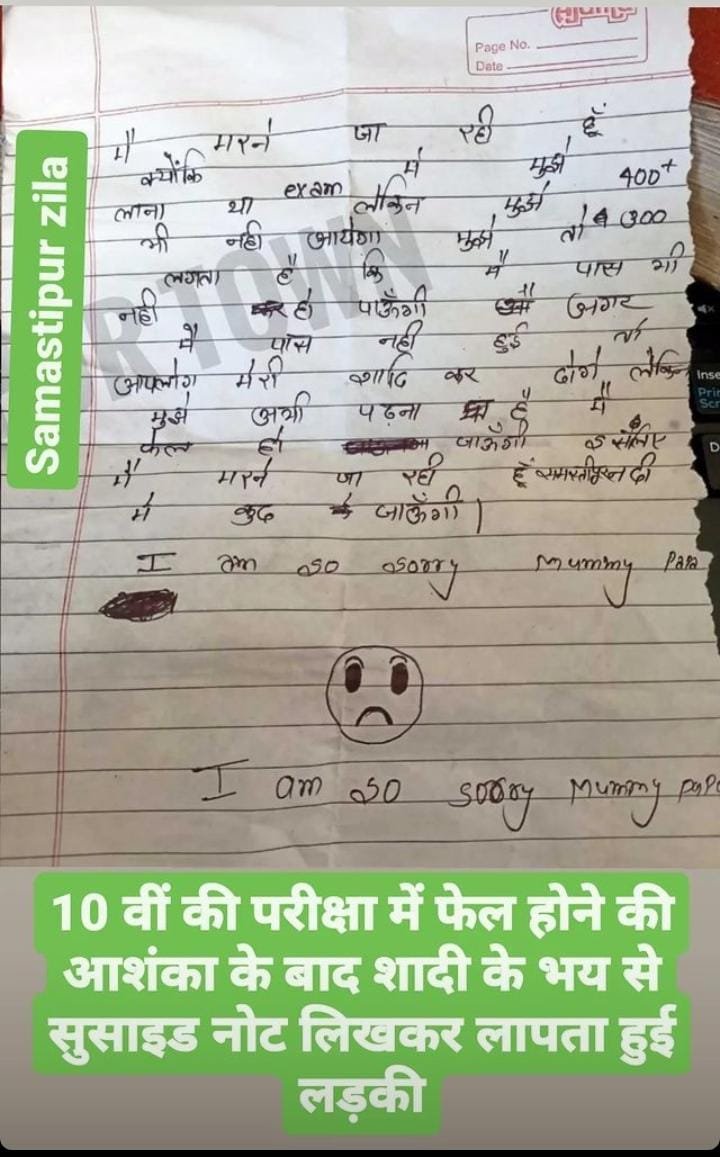 सुपर
Page No.
Date
Samastipur zila
मै मरने जा रही हूँ
क्योंकि exam मे मुझे 400+
लाना था लेकिन मुझे 300
भी नही आयेगा मुझे तो
लगता है कि मै पास भी
नही हो पाऊँगी अगर
मै पास नही हुई तो
आपलोग मेरी शादि कर दोगे लेकिन
मुझे अभी पढ़ना है मैं
फेल हो जाऊँगी इसलिए
मैं मरने जा रही हूँ
मे कुद जाऊँगी।
I am so sorry Mummy Papa
I am so sorry Mummy papa
R TOWN
10 वीं की परीक्षा में फेल होने की
आशंका के बाद शादी के भय से
सुसाइड नोट लिखकर लापता हुई
लड़की
Inse
Prt
Scr
D